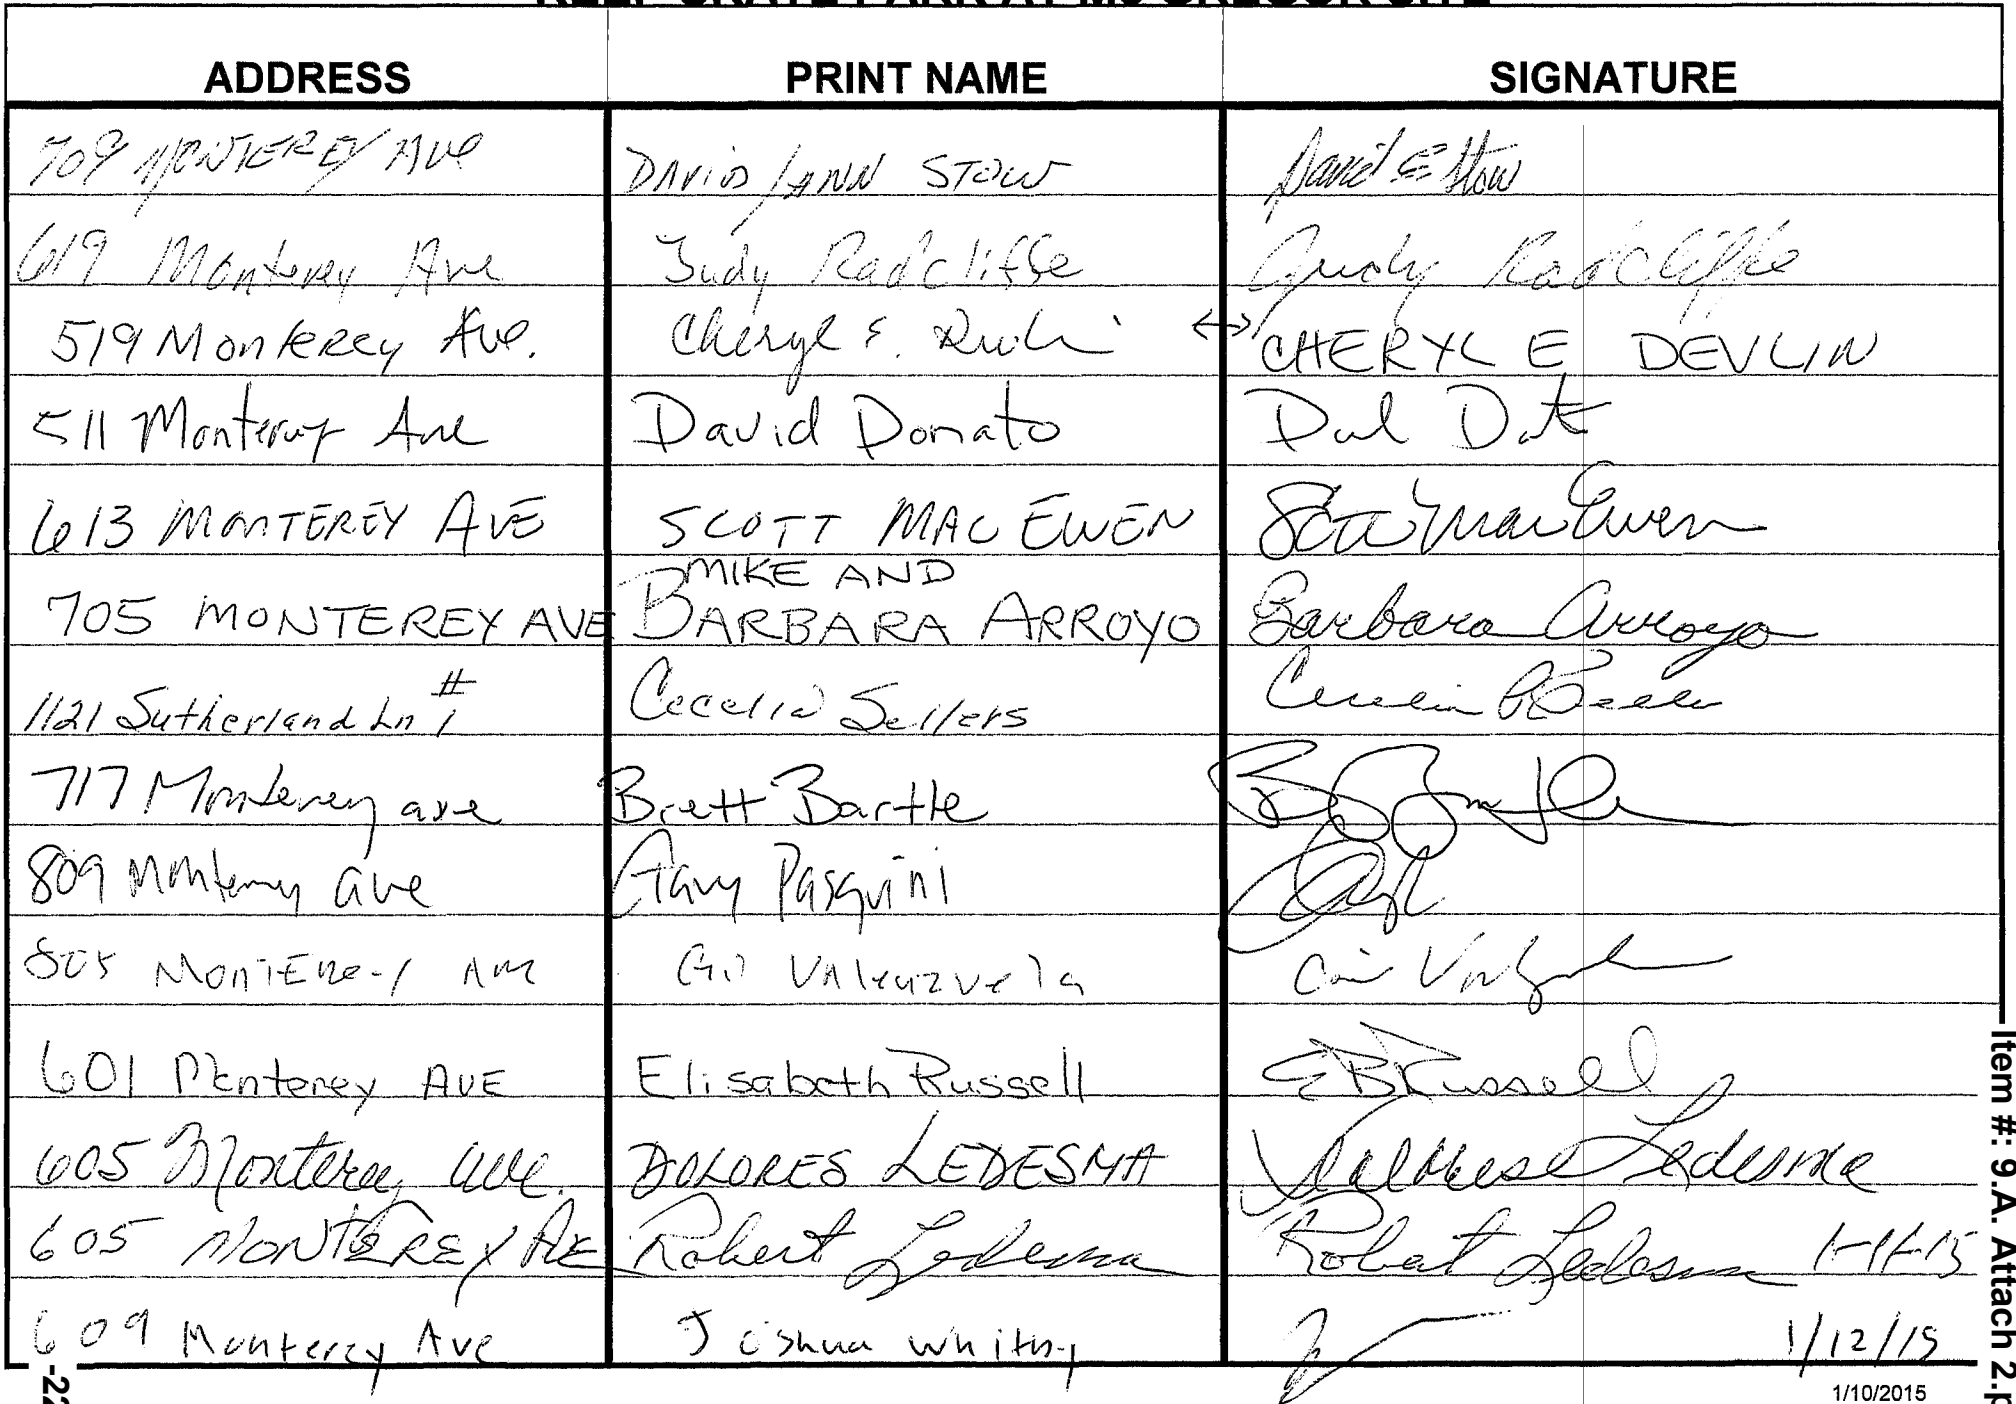 KEEP SKATE PARK AT MC GREGOR SITE
ADDRESS PRINT NAME SIGNATURE
709 MONTEREY AVE DAVID/ANN STOW David E Stow
619 Monterey Ave Judy Radcliffe Judy Radcliffe
519 Monterey Ave. Cheryl E. Devlin ↔ CHERYL E DEVLIN
511 Monterey Ave David Donato
613 MONTEREY AVE SCOTT MAC EWEN Scott MacEwen
705 MONTEREY AVE MIKE AND
BARBARA ARROYO Barbara Arroyo
1121 Sutherland Ln #1 Cecelia Sellers
717 Monterey ave Brett Bartle
809 Monterey ave Gary Pasquini
805 MONTEREY AVE Gil Valenzuela
601 Monterey AVE Elisabeth Russell EBRussell
605 Monterey ave. DOLORES LEDESMA Ledesma
605 MONTEREY AVE Robert Ledesma Robert Ledesma 1-11-15
609 Monterey Ave Joshua Whitby 1/12/15
1/10/2015
-22
Item #: 9.A. Attach 2.p